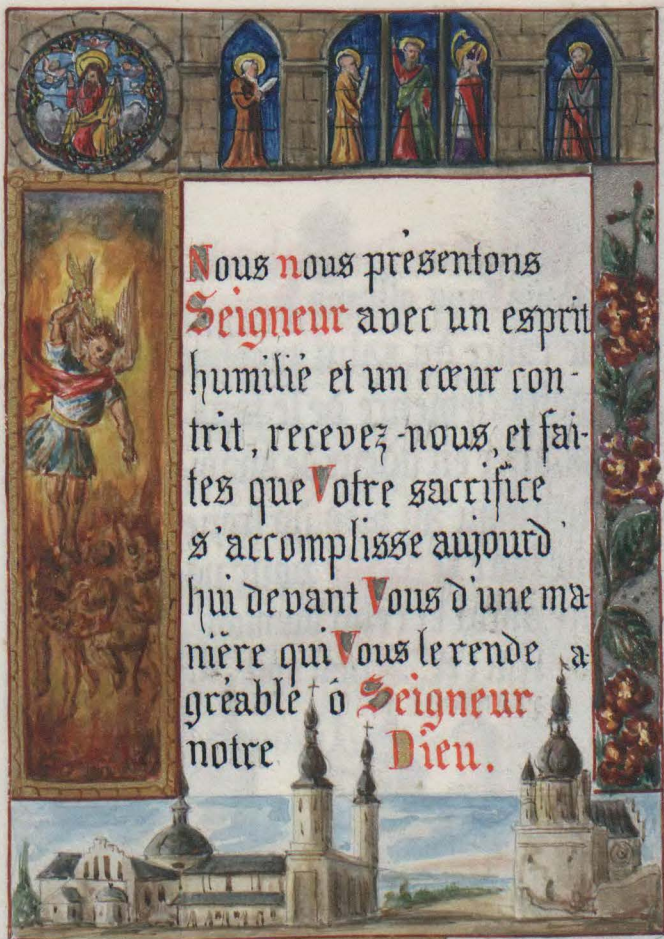 Nous nous présentons
Seigneur avec un esprit
humilié et un cœur con-
trit, recevez-nous, et fai-
tes que Votre sacrifice
s'accomplisse aujourd'
hui devant Vous d'une ma-
nière qui Vous le rende a-
gréable ô Seigneur
notre Dieu.